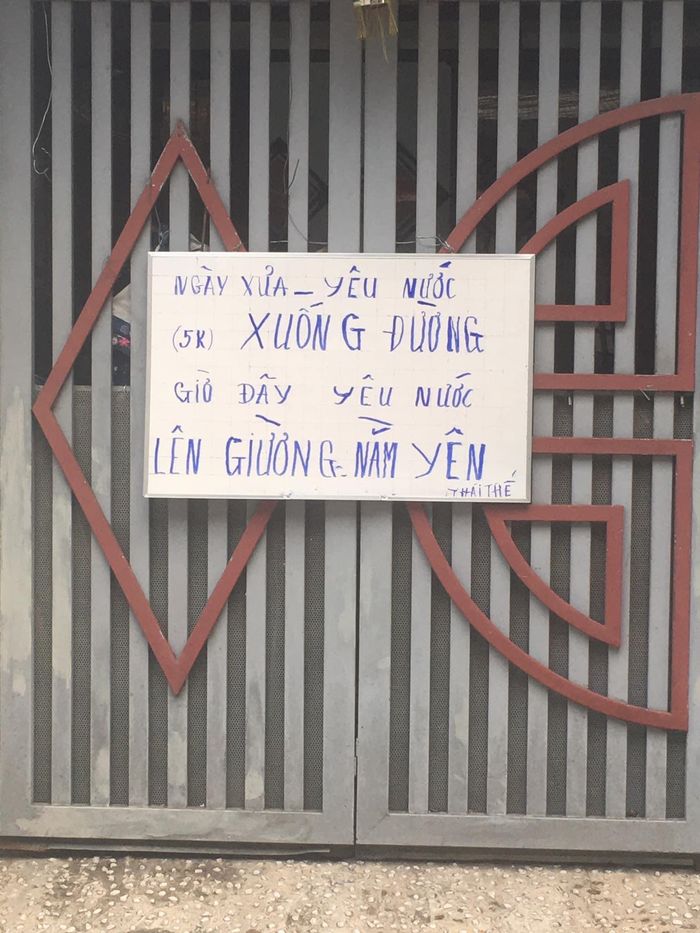 NGÀY XƯA - YÊU NƯỚC
(5K) XUỐNG ĐƯỜNG
GIỜ ĐÂY YÊU NƯỚC
LÊN GIƯỜNG - NẰM YÊN
THÁI THẾ